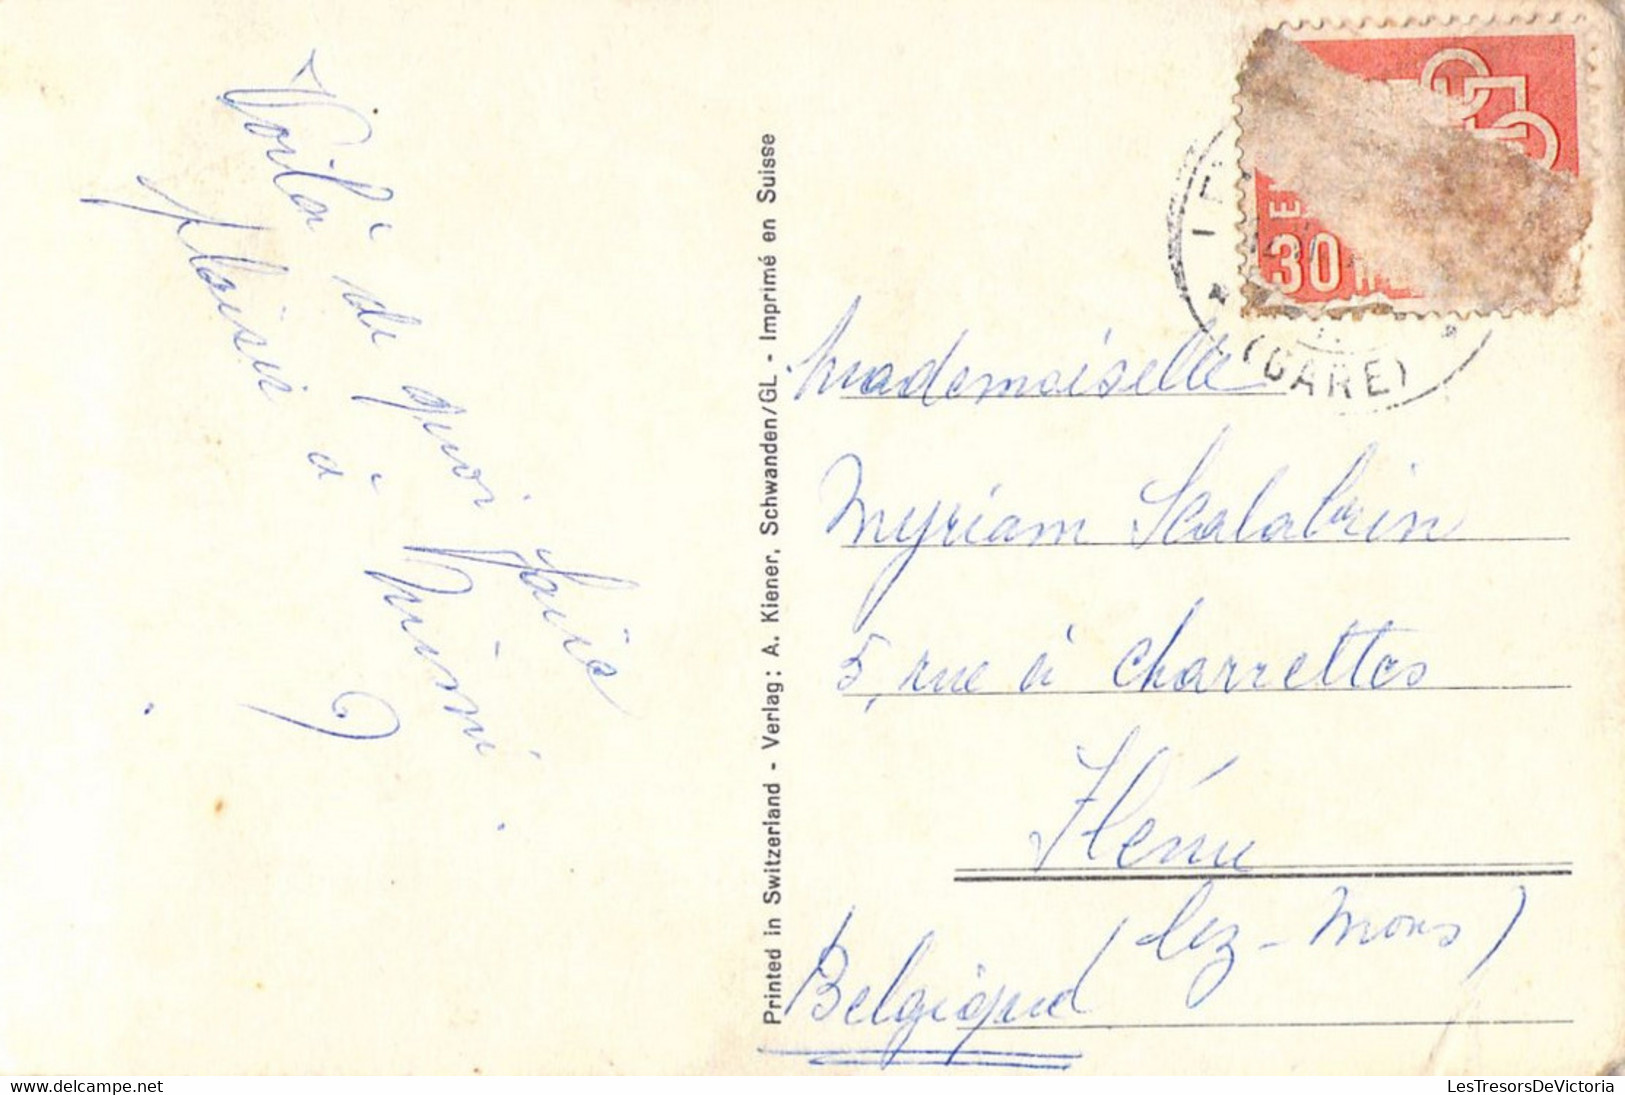 Voilà de quoi faire
plaisir à Mimi
Printed in Switzerland - Verlag: A. Kiener, Schwanden/GL - Imprimé en Suisse
30
(GARE)
Mademoiselle
Myriam Scalabrin
5, rue à Charrettes
Flénu
(lez-Mons)
Belgique
www.delcampe.net
LesTresorsDeVictoria